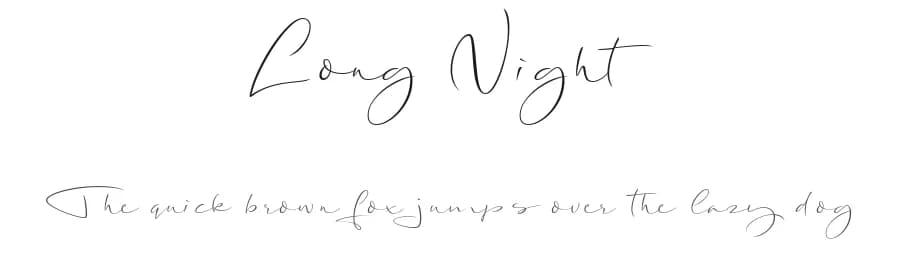 Long Night
The quick brown fox jumps over the lazy dog